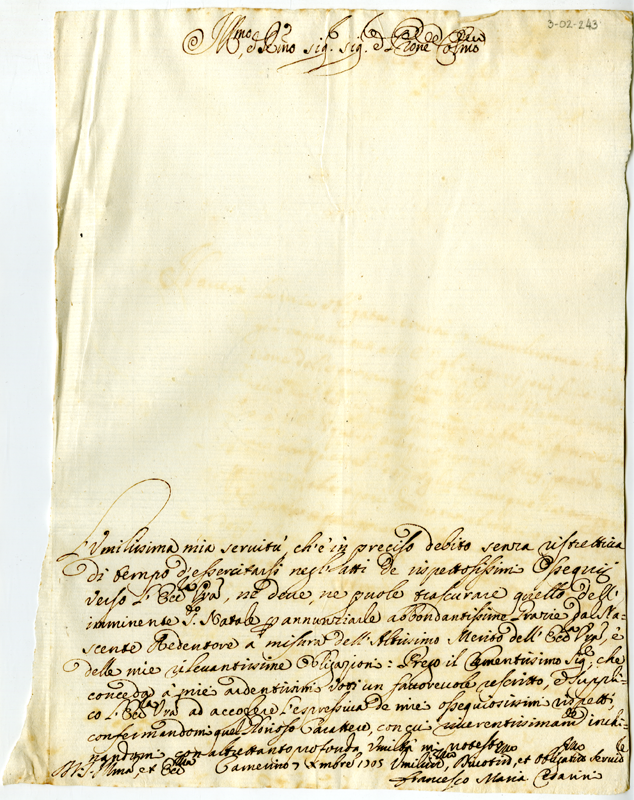 3-02-243
Ill.mo, e R.mo sig. sig. e Prone Colmo
L'Vmilissima mia seruitù, ch'è in preciso debito senza ristrettiua
di tempo d'essercitarsi negl'atti de rispettosissimi Ossequij
verso l'Ecc.za Vra, nè deue, nè puole trascurare quello dell'
imminente S. Natale p annunziarle abbondantissime Grazie dal Na-
scente Redentore a misura dell'Altissimo Merito dell'Ecc.za Vra, e
delle mie rileuantissime Obligazioni: Prego il Clementissimo Sig.e, che
conceda a miei ardentissimi Voti un fauoreuole rescritto, e suppli-
co l'Ecc.za Vra ad accogliere l'espressiua de miei ossequiosissimi rispetti,
confermandomi quel glorioso Carattere, con cui riuerentissimam.te inchi-
nandomi con altrettanto profonda Vmiltà mi
Ill.ma, et Ecc.
Camerino 7 Xmbre 1705 Vmiliss.o, Diuotiss.o, et Obligatiss.o Seruid.e
Francesco Maria